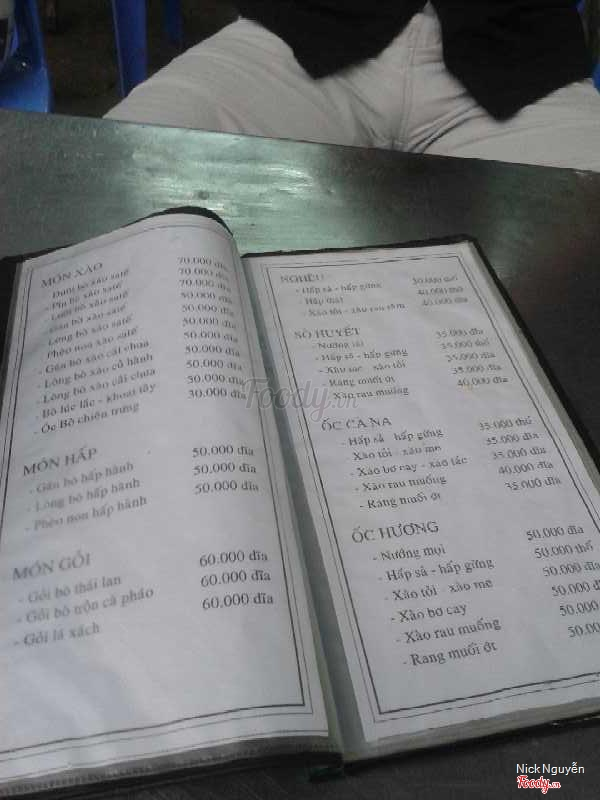 MÓN XÀO
- Đuôi bò xào satế 70.000 dĩa
- Pín bò xào satế 70.000 dĩa
- Lưỡi bò xào satế 70.000 dĩa
- Gân bò xào satế 50.000 dĩa
- Lòng bò xào satế 50.000 dĩa
- Phèo non xào satế 50.000 dĩa
- Gân bò xào cải chua 50.000 dĩa
- Lòng bò xào củ hành 50.000 dĩa
- Lòng bò xào cải chua 50.000 dĩa
- Bò lúc lắc - khoai tây 50.000 dĩa
- Ốc Bò chiên trứng 30.000 dĩa
MÓN HẤP
- Gân bò hấp hành 50.000 dĩa
- Lòng bò hấp hành 50.000 dĩa
- Phèo non hấp hành 50.000 dĩa
MÓN GỎI
- Gỏi bò thái lan 60.000 dĩa
- Gỏi bò trộn cà pháo 60.000 dĩa
- Gỏi lá xách 60.000 dĩa
NGHÊU
- Hấp sả - hấp gừng 30.000 thố
- Hấp thái 40.000 thố
- Xào tỏi - xào rau răm 40.000 dĩa
SÒ HUYẾT
- Nướng mọi 35.000 dĩa
- Hấp sả - hấp gừng 35.000 thố
- xào tỏi 35.000 dĩa
- Rang muối ớt 35.000 dĩa
- Xào rau muống 40.000 dĩa
ỐC CÀ NA
- Hấp sả - hấp gừng 35.000 thố
- Xào tỏi - xào me 35.000 dĩa
- Xào bơ cay - xào tắc 35.000 dĩa
- Xào rau muống 40.000 dĩa
- Rang muối ớt 35.000 dĩa
ỐC HƯƠNG
- Nướng mọi 50.000 dĩa
- Hấp sả - hấp gừng 50.000 thố
- Xào tỏi - xào me 50.000 dĩa
- Xào bơ cay 50.000
- Xào rau muống 50.000
- Rang muối ớt 50.00
Foody.vn
Nick Nguyễn
Foody.vn